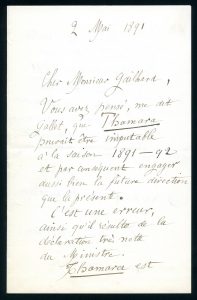 2 Mai 1891
Cher Monsieur Gailhard,
Vous avez pensé, me dit
Gallet, que Thamara
pourrait être imputable
à la saison 1891-92
et par conséquent engager
aussi bien la future direction
que la présente.
C'est une erreur,
ainsi qu'il résulte de la
déclaration très nette
du Ministre.
Thamara est